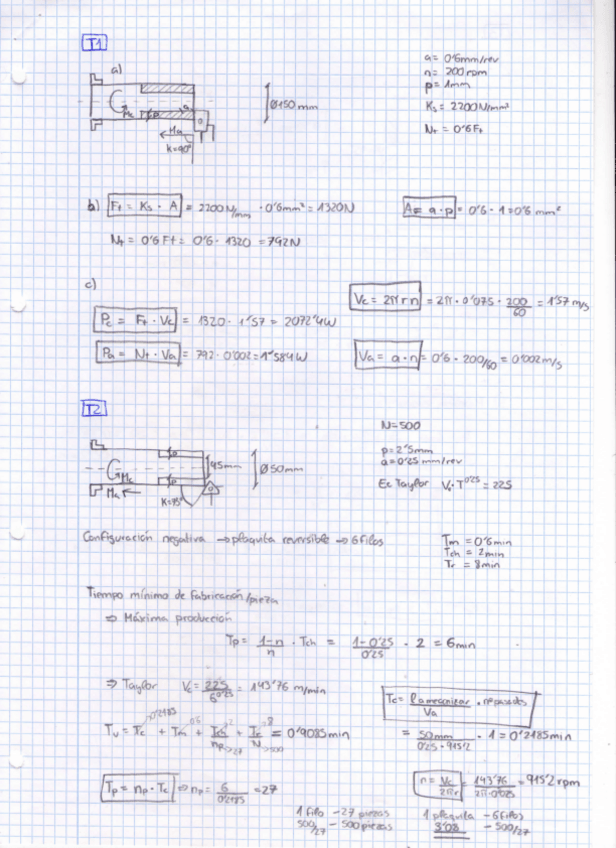 T1
a)
a = 0'6mm/rev
n = 200 rpm
p = 1mm
Ks = 2200 N/mm²
Nt = 0'6 Ft
Ø150 mm
Mc
p
a
Ma
K=90°
b) Ft = Ks · A = 2200 N/mm · 0'6mm² = 1320N
A = a · p = 0'6 · 1 = 0'6 mm²
Nt = 0'6 Ft = 0'6 · 1320 = 792N
c)
Vc = 2πrn = 2π · 0'075 · 200/60 = 1'57 m/s
Pc = Ft · Vc = 1320 · 1'57 = 2072'4W
Pa = Nt · Va = 792 · 0'002 = 1'584W
Va = a · n = 0'6 · 200/60 = 0'002 m/s
T2
N=500
p = 2'5mm
a = 0'25 mm/rev
Ec Taylor Vc · T^0'25 = 225
p
p
45mm
Ø50mm
Mc
Ma
K=75°
Configuración negativa → plaquita reversible → 6 filos
Tm = 0'6min
Tch = 2min
Tr = 8min
Tiempo mínimo de fabricación/pieza
⇒ Máxima producción
Tp = 1-n/n · Tch = 1-0'25/0'25 · 2 = 6min
⇒ Taylor Vc = 225/6^0'25 = 143'76 m/min
Tc = l a mecanizar/Va · nº pasadas
= 50mm/0'25 · 915'2 · 1 = 0'2185min
Tu = Tc + Tm + Tch/np + Tr/N = 0'9085min
0'2185
0'6
2
8
27
500
Tp = np · Tc ⇒ np = 6/0'2185 = 27
n = Vc/2πr = 143'76/2π · 0'025 = 915'2 rpm
1 filo - 27 piezas
500/27 - 500 piezas
1 plaquita - 6 filos
3'08 - 500/27